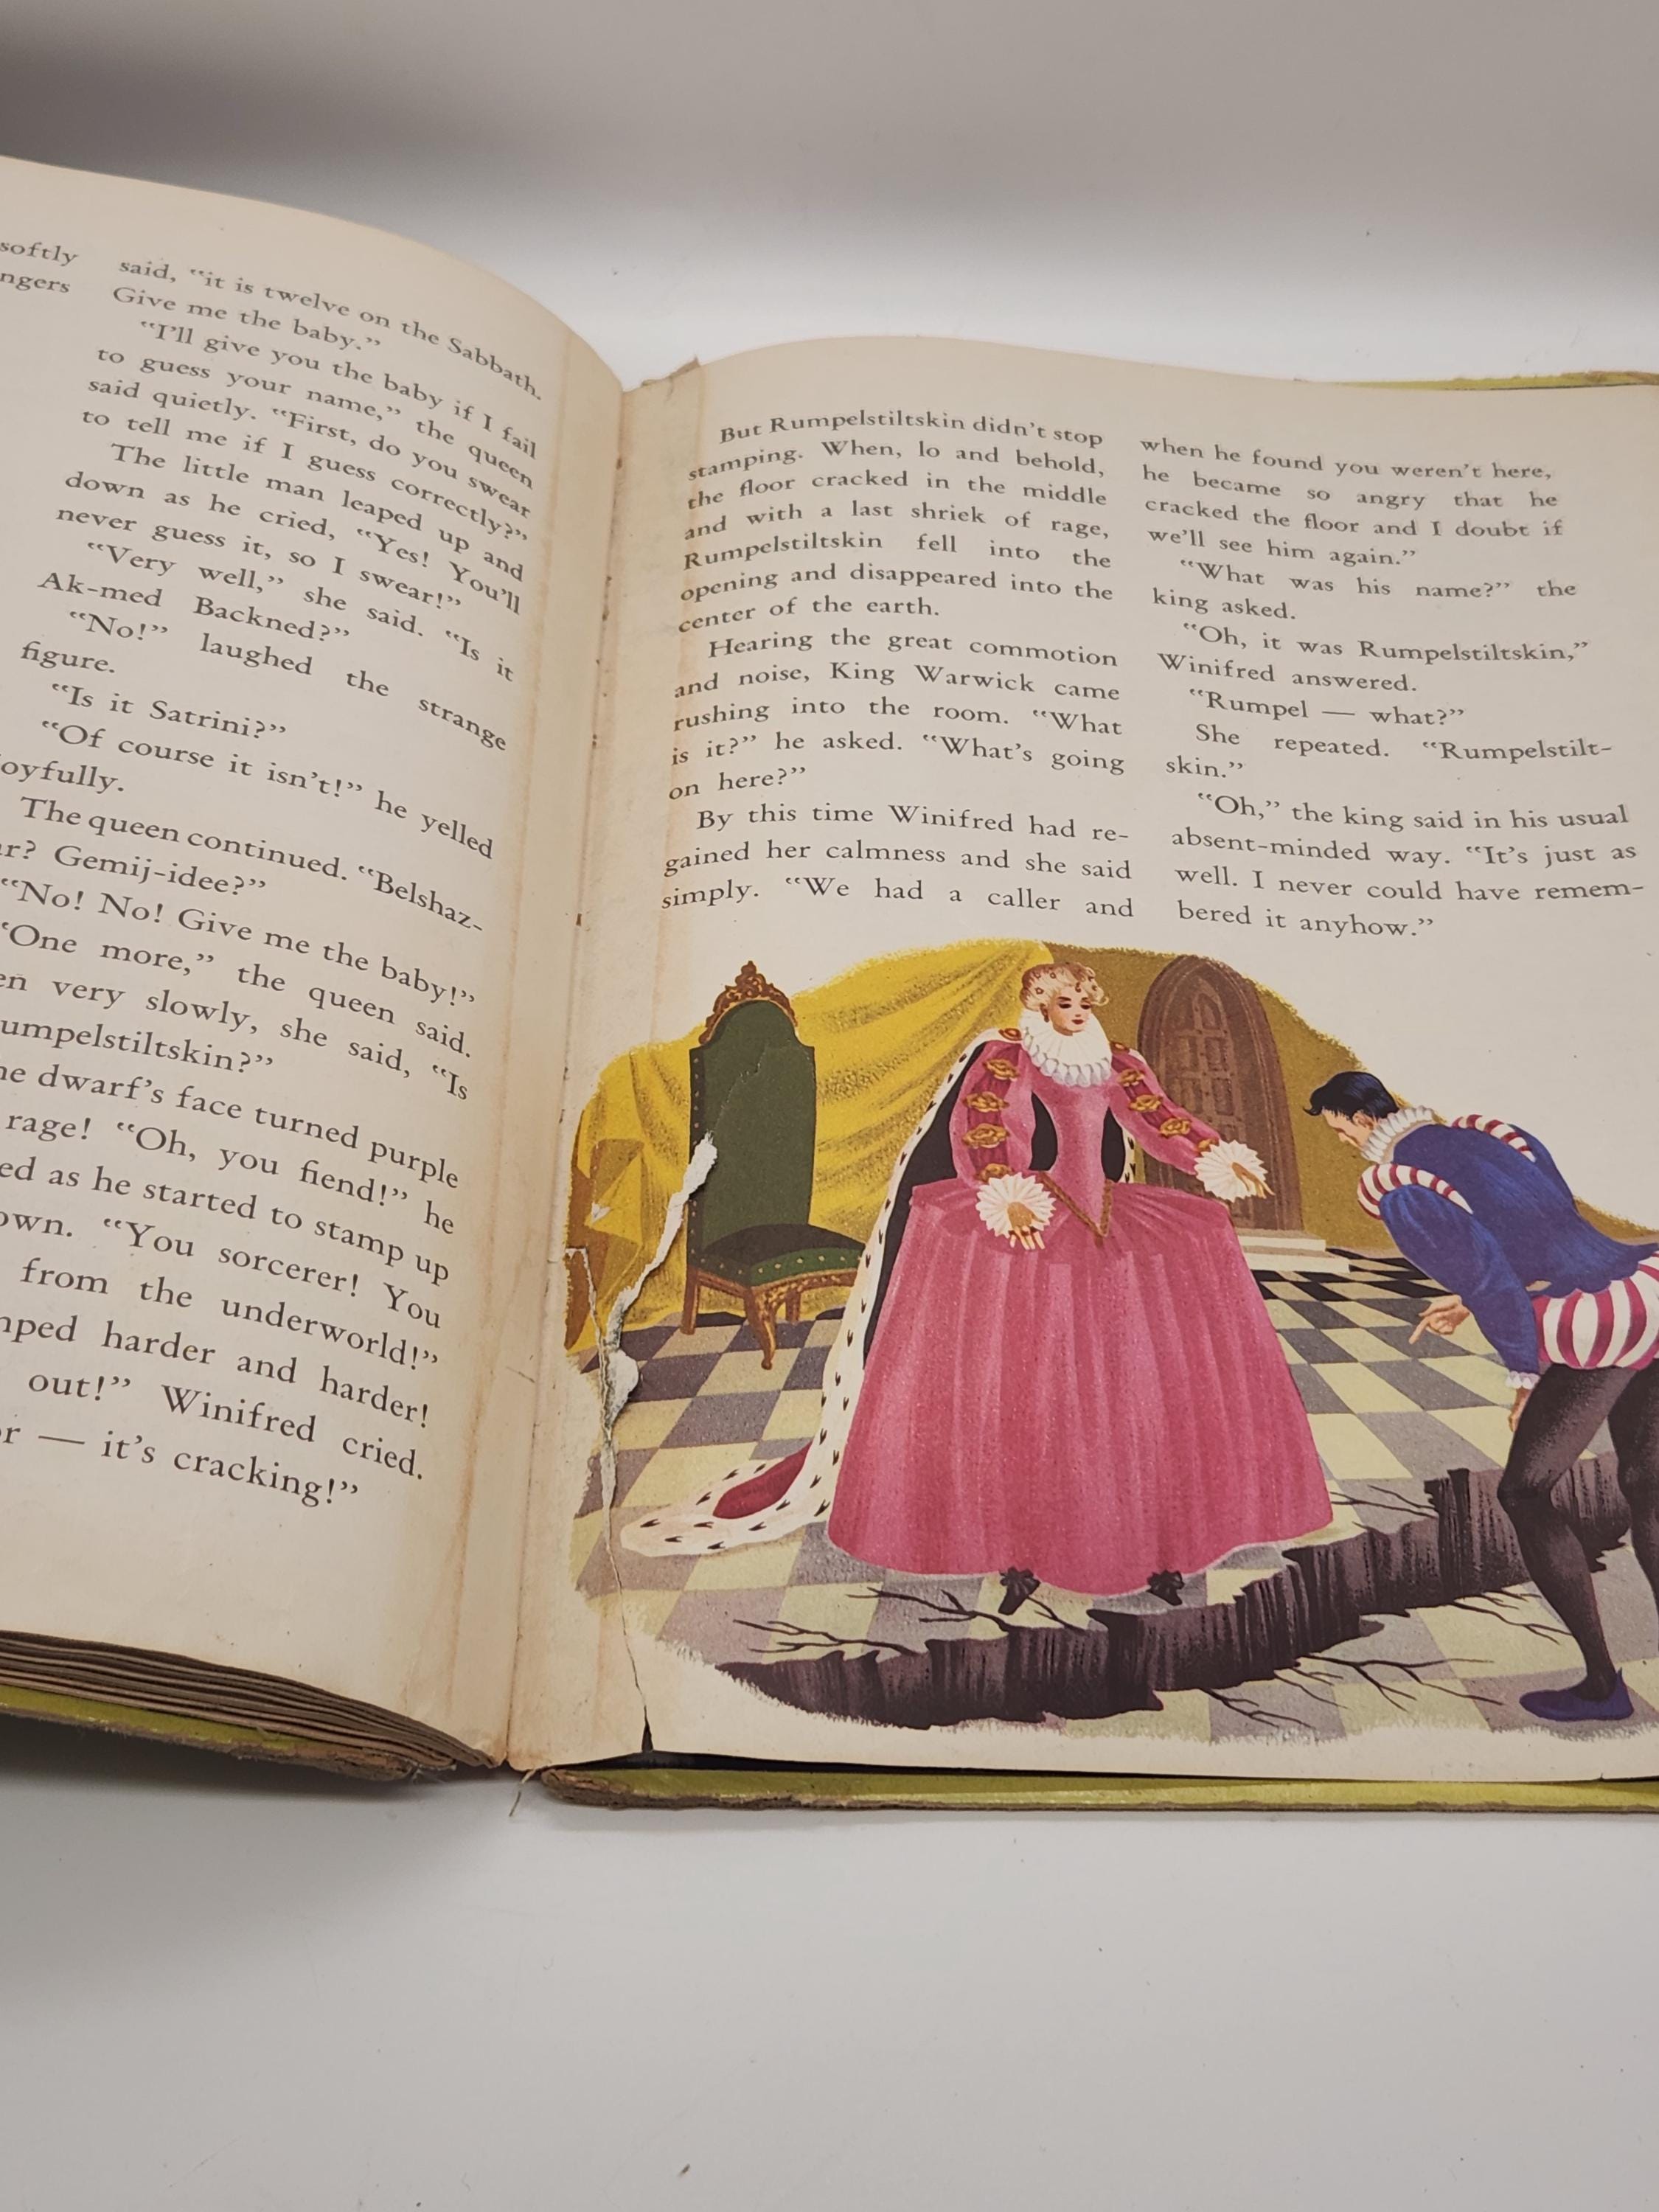 softly
ngers
said, “it is twelve on the Sabbath.
Give me the baby.”
“I’ll give you the baby if I fail
to guess your name,” the queen
said quietly. “First, do you swear
to tell me if I guess correctly?”
The little man leaped up and
down as he cried, “Yes! You’ll
never guess it, so I swear!”
“Very well,” she said. “Is it
Ak-med Backned?”
“No!” laughed the strange
figure.
“Is it Satrini?”
“Of course it isn’t!” he yelled
oyfully.
The queen continued. “Belshaz-
ar? Gemij-idee?”
“No! No! Give me the baby!”
“One more,” the queen said.
en very slowly, she said, “Is
umpelstiltskin?”
he dwarf’s face turned purple
rage! “Oh, you fiend!” he
ed as he started to stamp up
own. “You sorcerer! You
from the underworld!”
mped harder and harder!
out!” Winifred cried.
or — it’s cracking!”
But Rumpelstiltskin didn’t stop
stamping. When, lo and behold,
the floor cracked in the middle
and with a last shriek of rage,
Rumpelstiltskin fell into the
opening and disappeared into the
center of the earth.
Hearing the great commotion
and noise, King Warwick came
rushing into the room. “What
is it?” he asked. “What’s going
on here?”
By this time Winifred had re-
gained her calmness and she said
simply. “We had a caller and
when he found you weren’t here,
he became so angry that he
cracked the floor and I doubt if
we’ll see him again.”
“What was his name?” the
king asked.
“Oh, it was Rumpelstiltskin,”
Winifred answered.
“Rumpel — what?”
She repeated. “Rumpelstilt-
skin.”
“Oh,” the king said in his usual
absent-minded way. “It’s just as
well. I never could have remem-
bered it anyhow.”